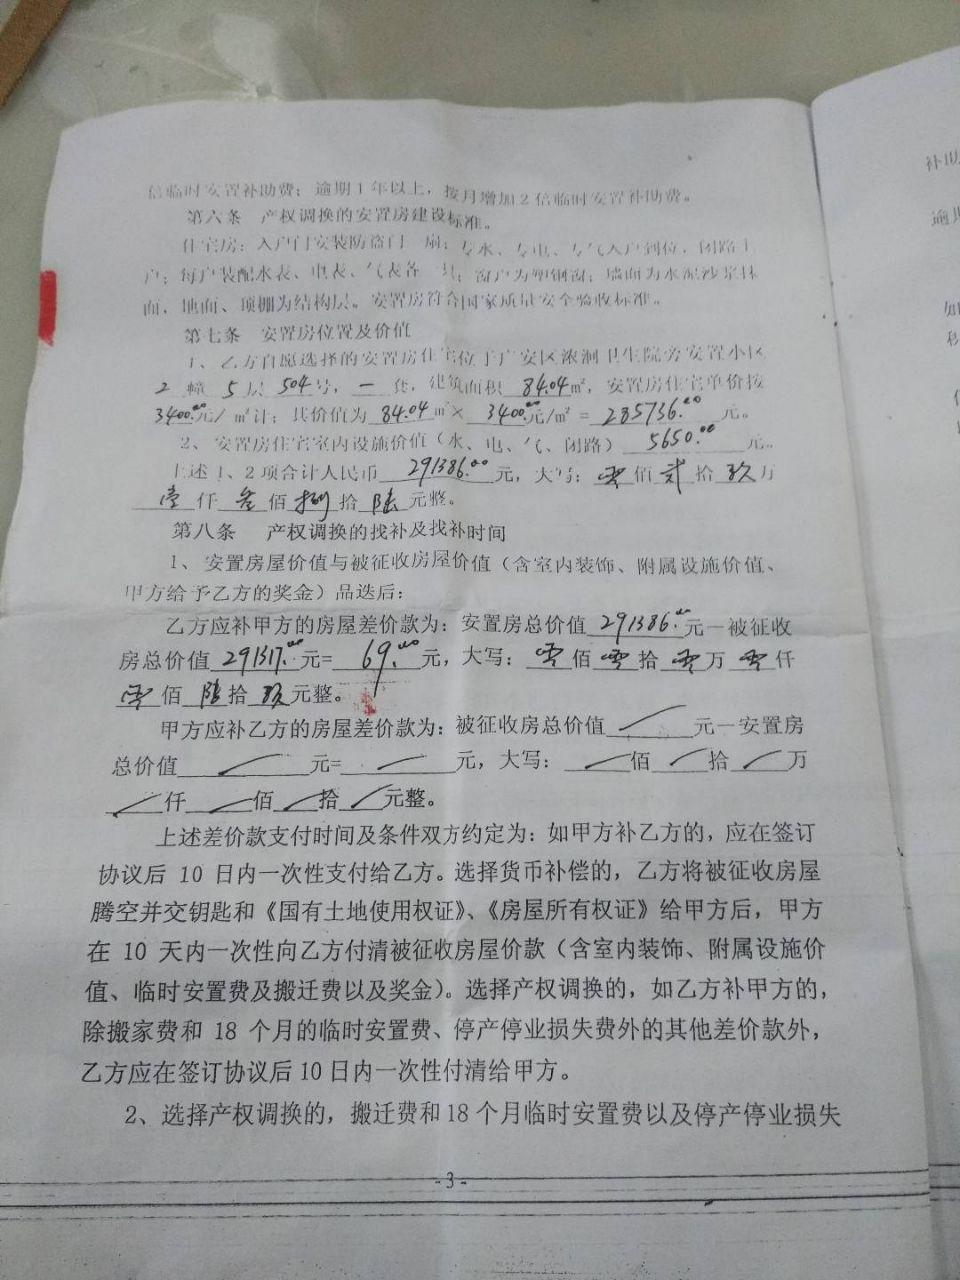 倍临时安置补助费；逾期1年以上，按月增加2倍临时安置补助费。
第六条 产权调换的安置房建设标准。
住宅房：入户门安装防盗门一扇；专水、专电、专气入户到位，闭路主
户；每户装配水表、电表、气表各一具；窗户为塑钢窗；墙面为水泥沙浆抹
面，地面、顶棚为结构层。安置房符合国家质量安全验收标准。
第七条 安置房位置及价值
1、乙方自愿选择的安置房住宅位于广安区浓洄卫生院旁安置小区
2 幢 5 层 504 号，一 套，建筑面积 84.04 m²，安置房住宅单价按
3400.00元/㎡计；其价值为 84.04 ㎡× 3400.00元/㎡ = 285736.00 元。
2、安置房住宅室内设施价值（水、电、气、闭路） 5650.00 元。
上述1、2项合计人民币 291386.00 元，大写：零 佰 贰 拾 玖 万
壹 仟 叁 佰 捌 拾 陆 元整。
第八条 产权调换的找补及找补时间
1、安置房屋价值与被征收房屋价值（含室内装饰、附属设施价值、
甲方给予乙方的奖金）品迭后：
乙方应补甲方的房屋差价款为：安置房总价值 291386.00 元－被征收
房总价值 291317.00 元= 69.00 元，大写： 零 佰 零 拾 零 万 零 仟
零 佰 陆 拾 玖 元整。
甲方应补乙方的房屋差价款为：被征收房总价值 ／ 元－安置房
总价值 ／ 元= ／ 元，大写： ／ 佰 ／ 拾 ／ 万
／ 仟 ／ 佰 ／ 拾 ／ 元整。
上述差价款支付时间及条件双方约定为：如甲方补乙方的，应在签订
协议后 10 日内一次性支付给乙方。选择货币补偿的，乙方将被征收房屋
腾空并交钥匙和《国有土地使用权证》、《房屋所有权证》给甲方后，甲方
在 10 天内一次性向乙方付清被征收房屋价款（含室内装饰、附属设施价
值、临时安置费及搬迁费以及奖金）。选择产权调换的，如乙方补甲方的，
除搬家费和 18 个月的临时安置费、停产停业损失费外的其他差价款外，
乙方应在签订协议后10日内一次性付清给甲方。
2、选择产权调换的，搬迁费和18个月临时安置费以及停产停业损失
-3-
补助
逾期
如